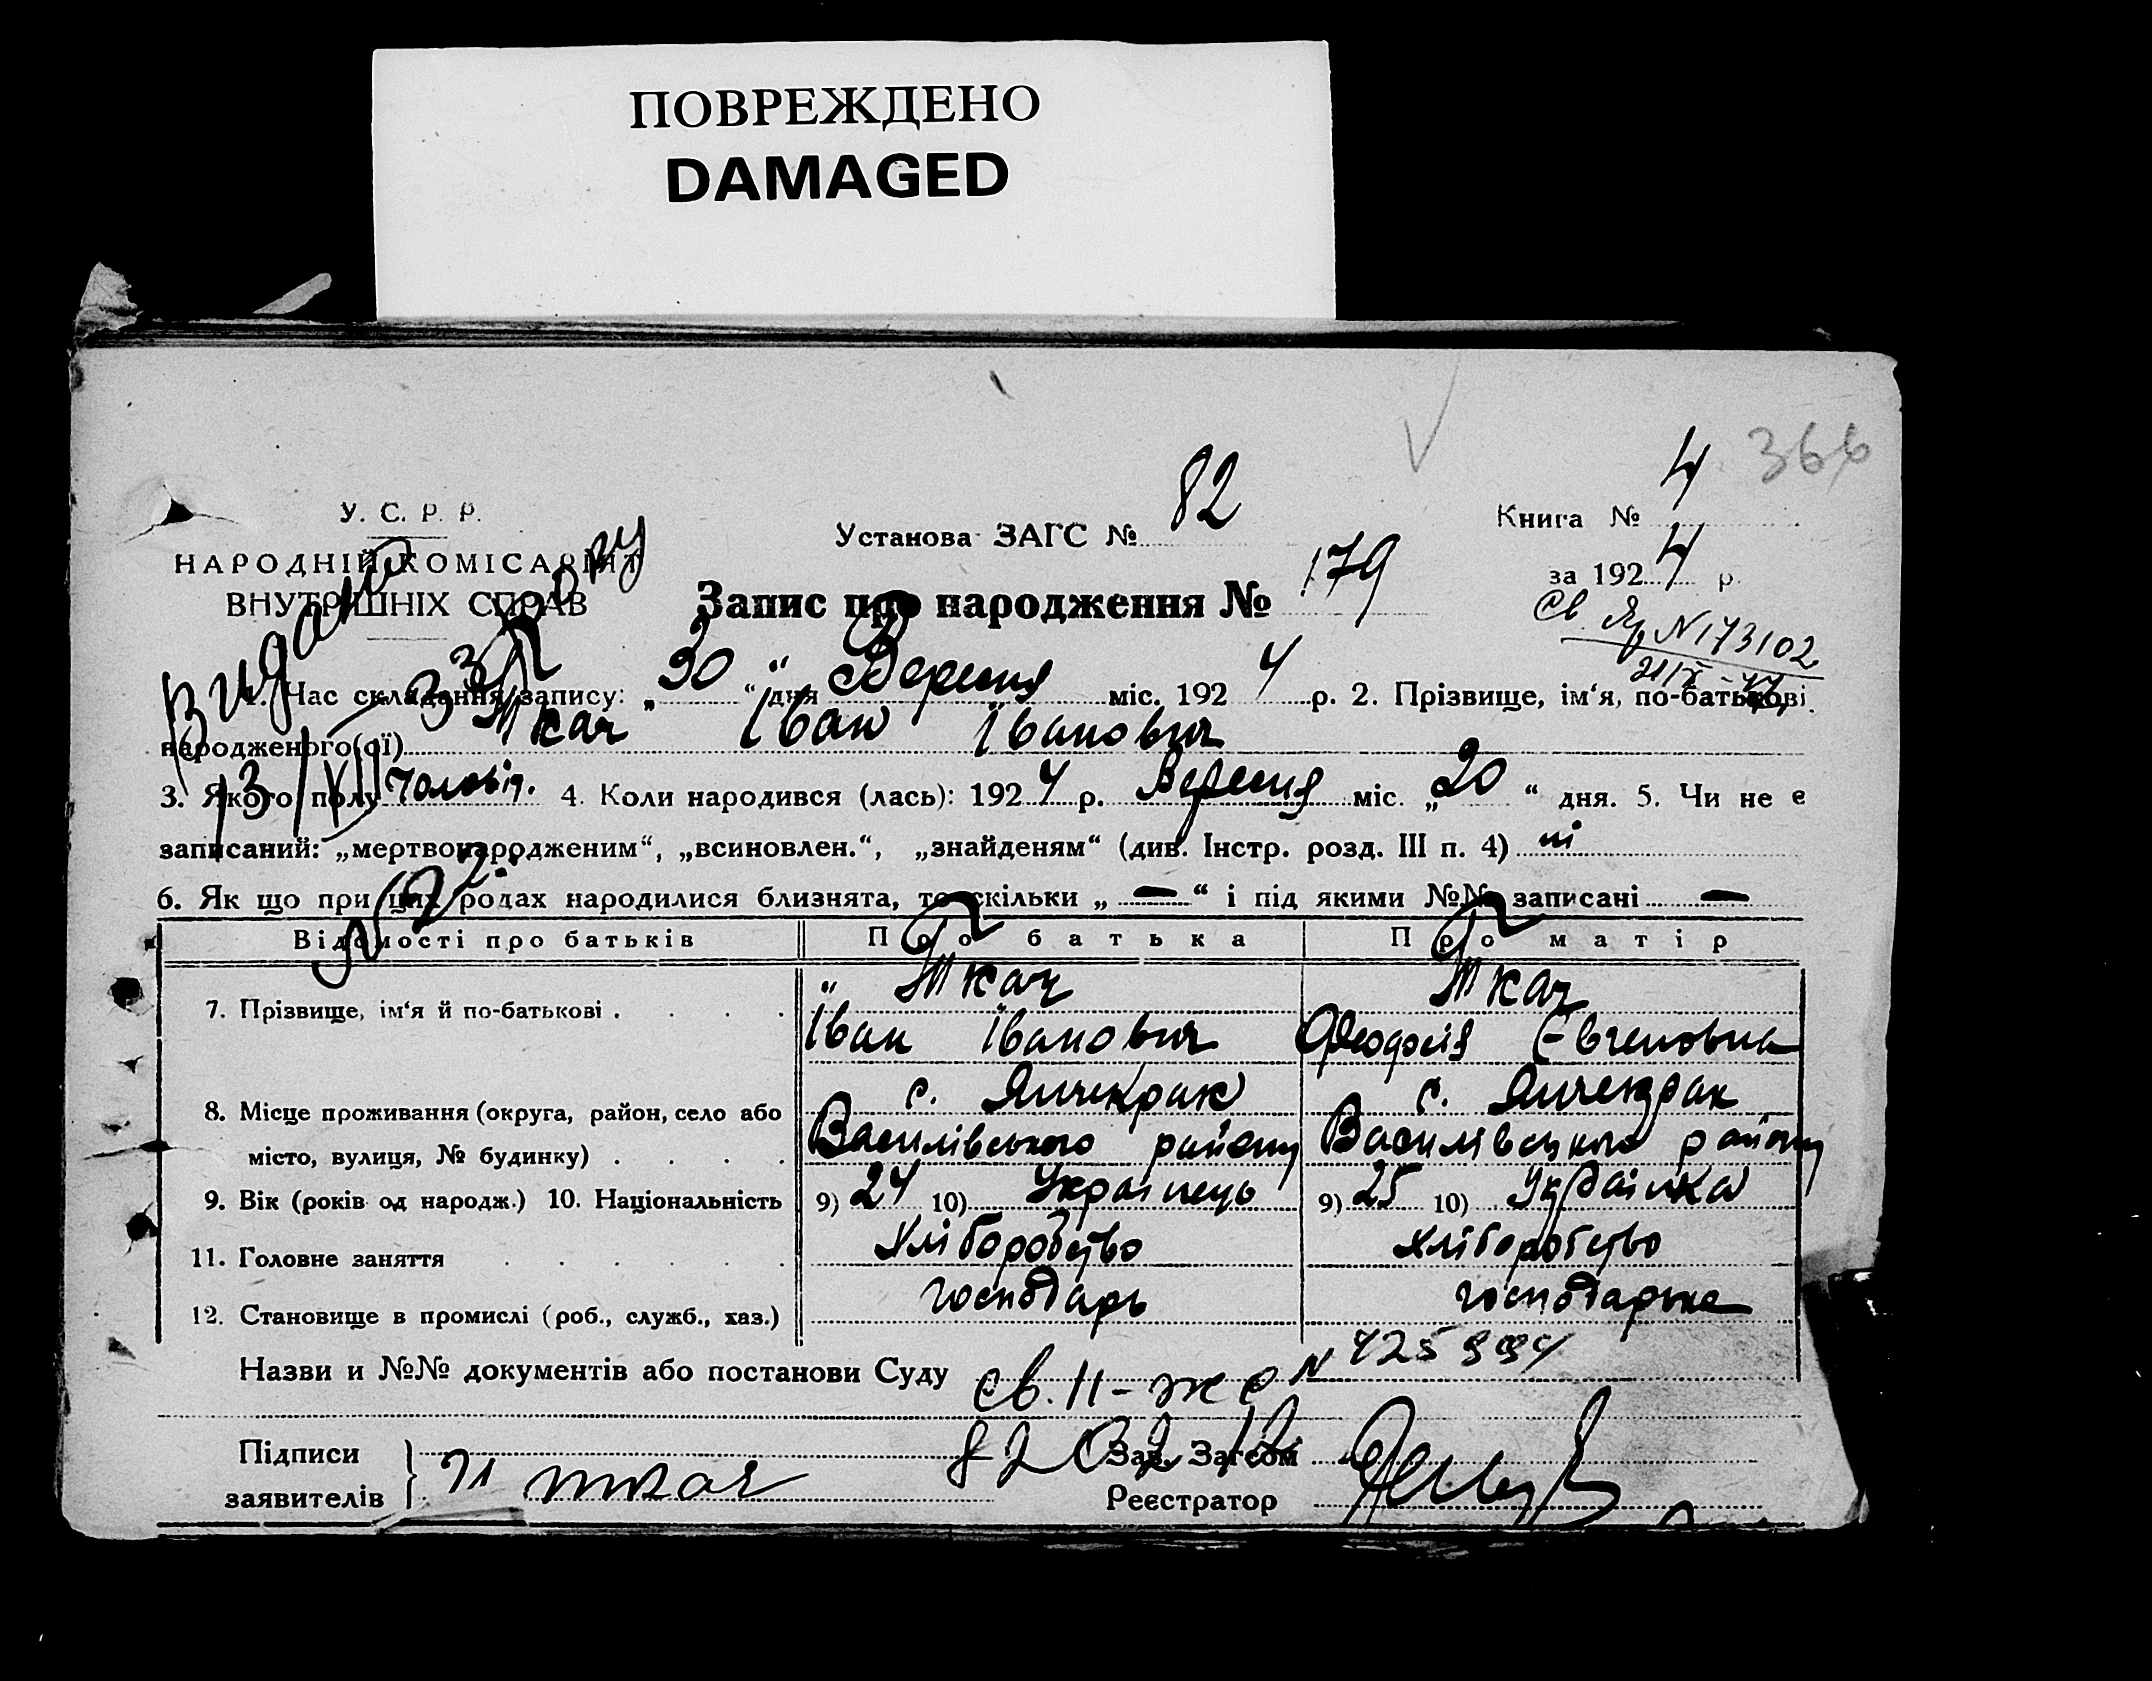 ПОВРЕЖДЕНО
DAMAGED
366
У. С. Р. Р.
НАРОДНІЙ КОМІСАРІЯТ
ВНУТРІШНІХ СПРАВ
Установа ЗАГС № 82
Книга № 4
за 1924 р.
Запис про народження № 179
Св. № 173102
Видано
1. Час складання запису: „30“ дня Вересня міс. 1924 р. 2. Прізвище, ім‘я, по-батькові
народженого(ої) Ткач Іван Іванович
3. Якого полу чоловіч. 4. Коли народився (лась): 1924 р. Вересня міс. „20“ дня. 5. Чи не є
записаний: „мертвонародженим“, „всиновлен.“, „знайденям“ (див. Інстр. розд. III п. 4) ні
6. Як що при цих родах народилися близнята, то скільки „—“ і під якими №№ записані —
Відомості про батьків Про батька Про матір
7. Прізвище, ім‘я й по-батькові . . . . Ткач Ткач
Іван Іванович Феодосія Євгеновна
8. Місце проживання (округа, район, село або с. Янчекрак с. Янчекрак
місто, вулиця, № будинку) . . . . Василівського району Василівського району
9. Вік (років од народж.) 10. Національність 9) 24 10) Українець 9) 25 10) Українка
11. Головне заняття . . . . . . Хліборобство хліборобство
12. Становище в промислі (роб., служб., хаз.) господарь господарка
Назви и №№ документів або постанови Суду св. II-жс № 425994
Підписи
заявителів } И ткач
Зав. Загсом
Реєстратор